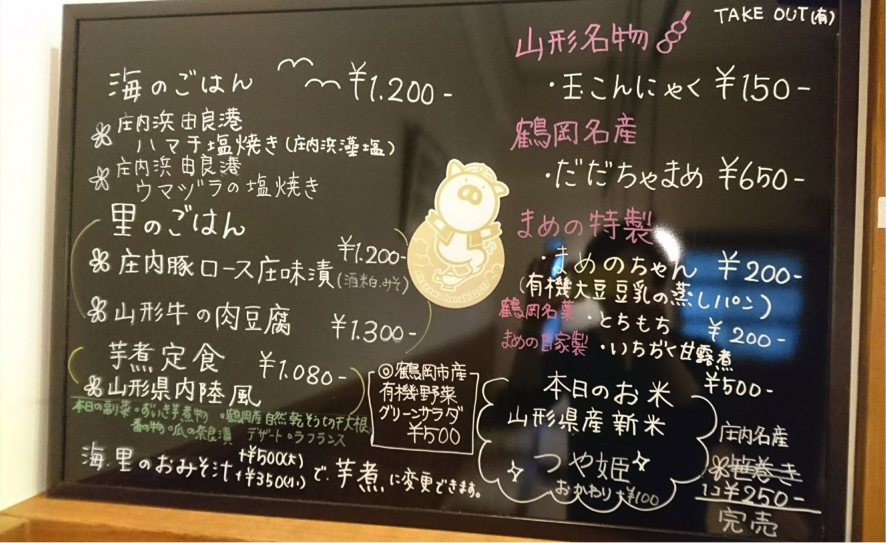 TAKE OUT(有)
海のごはん ¥1.200-
庄内浜由良港
ハマチ塩焼き(庄内浜藻塩)
庄内浜由良港
ウマヅラの塩焼き
里のごはん
¥1.200-
庄内豚ロース庄味漬(酒粕.みそ)
山形牛の肉豆腐 ¥1.300-
芋煮定食 ¥1.080-
山形県内陸風
本日の副菜・ずいき芋煮物 ・鶴岡産自然乾そうの干大根
香の物・瓜の奈良漬 デザート・ラフランス
海.里のおみそ汁 +¥500(大) +¥350(小) で.芋煮に変更できます。
◎鶴岡市産
有機野菜
グリーンサラダ
¥500
山形名物
・玉こんにゃく ¥150-
鶴岡名産
・だだちゃまめ ¥650-
まめの特製
・まめのちゃん ¥200-
(有機大豆豆乳の蒸しパン)
鶴岡名菓 ・とちもち ¥200-
まめの自家製 ・いちぢく甘露煮
¥500-
本日のお米
山形県産新米
つや姫
おかわり大¥100
庄内名産
笹巻き
1コ¥250-
完売